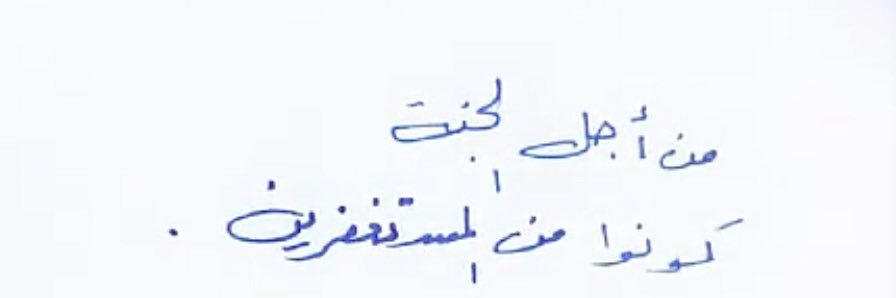 من أجل الجنة
كونوا من المستغفرين .